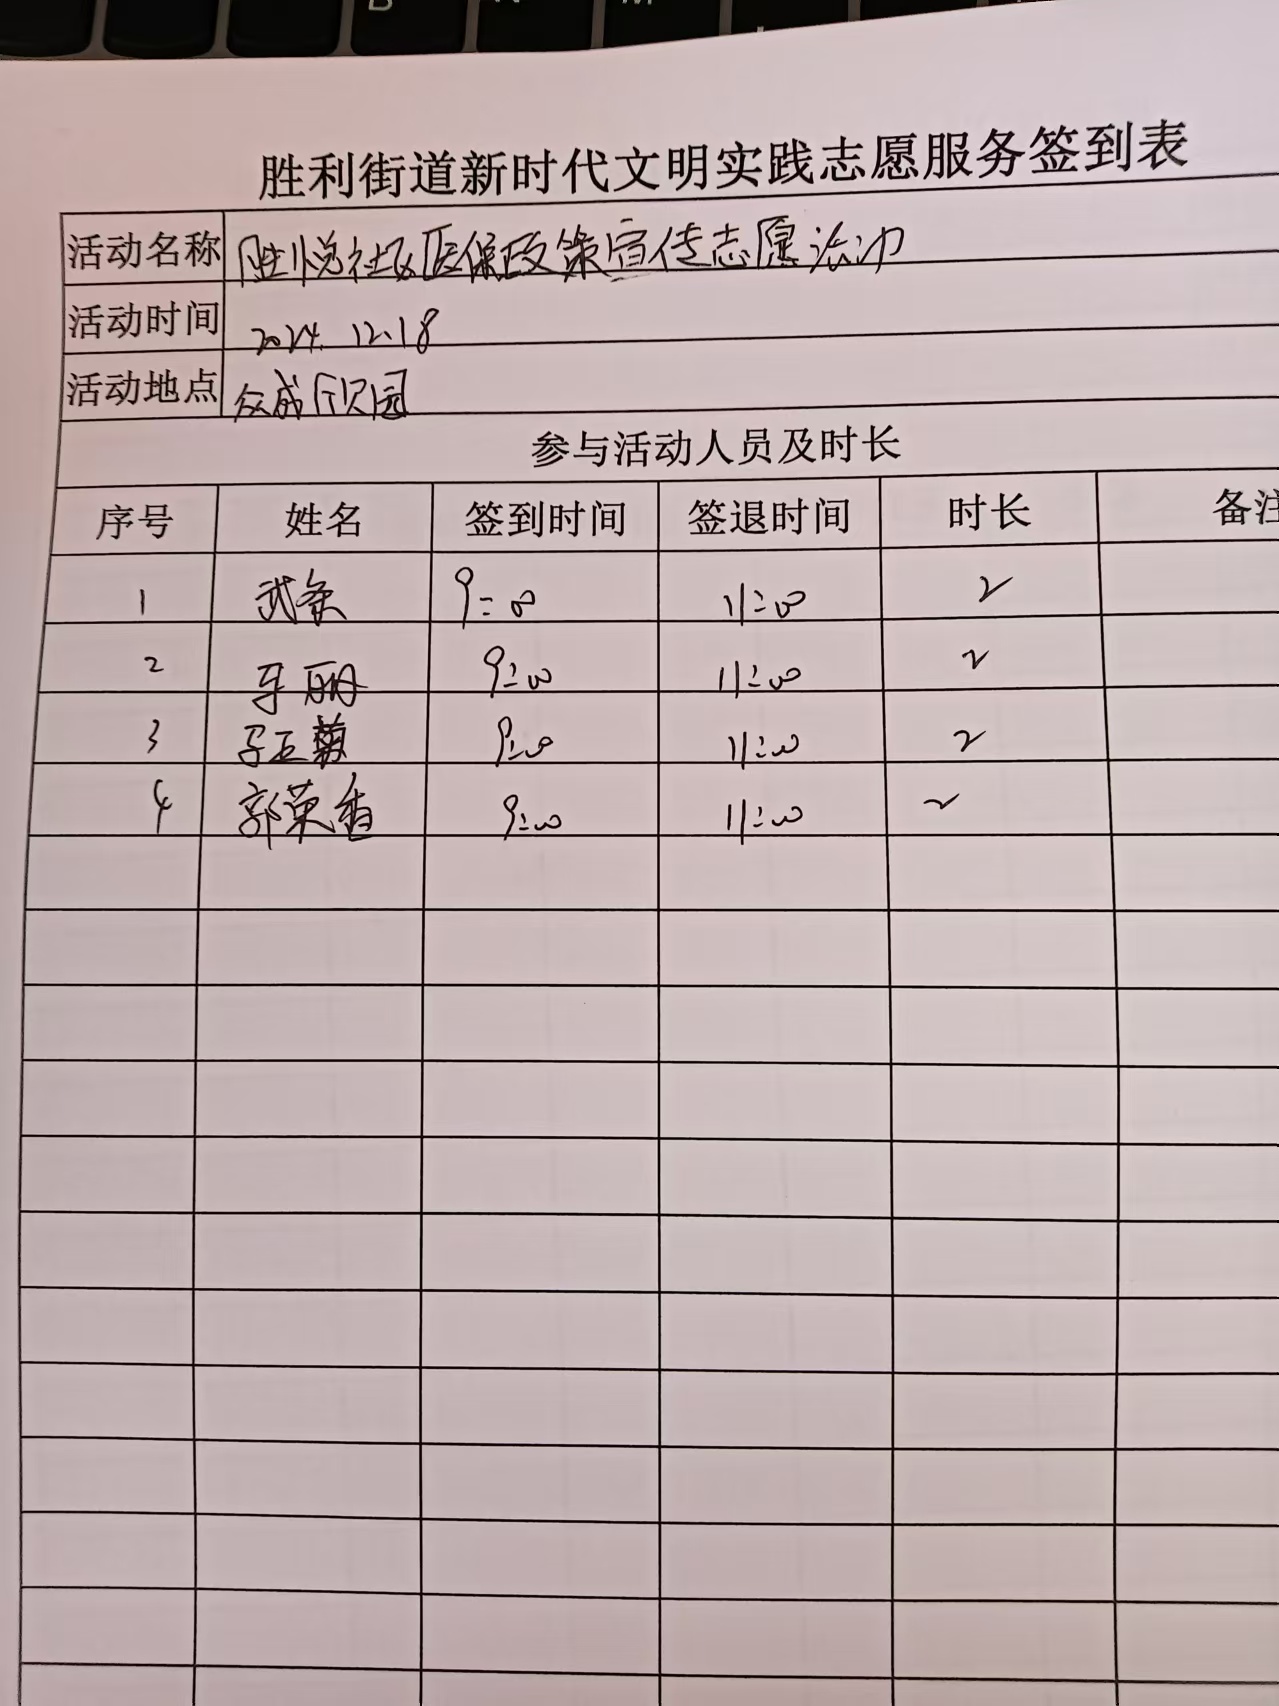 胜利街道新时代文明实践志愿服务签到表
活动名称 胜悦社区医保政策宣传志愿活动
活动时间 2024.12.18
活动地点 众成
参与活动人员及时长
序号 姓名 签到时间 签退时间 时长 备注
1 武 9:00 11:00 2
2 丽 9:00 11:00 2
3 9:00 11:00 2
4 郭荣香 9:00 11:00 2